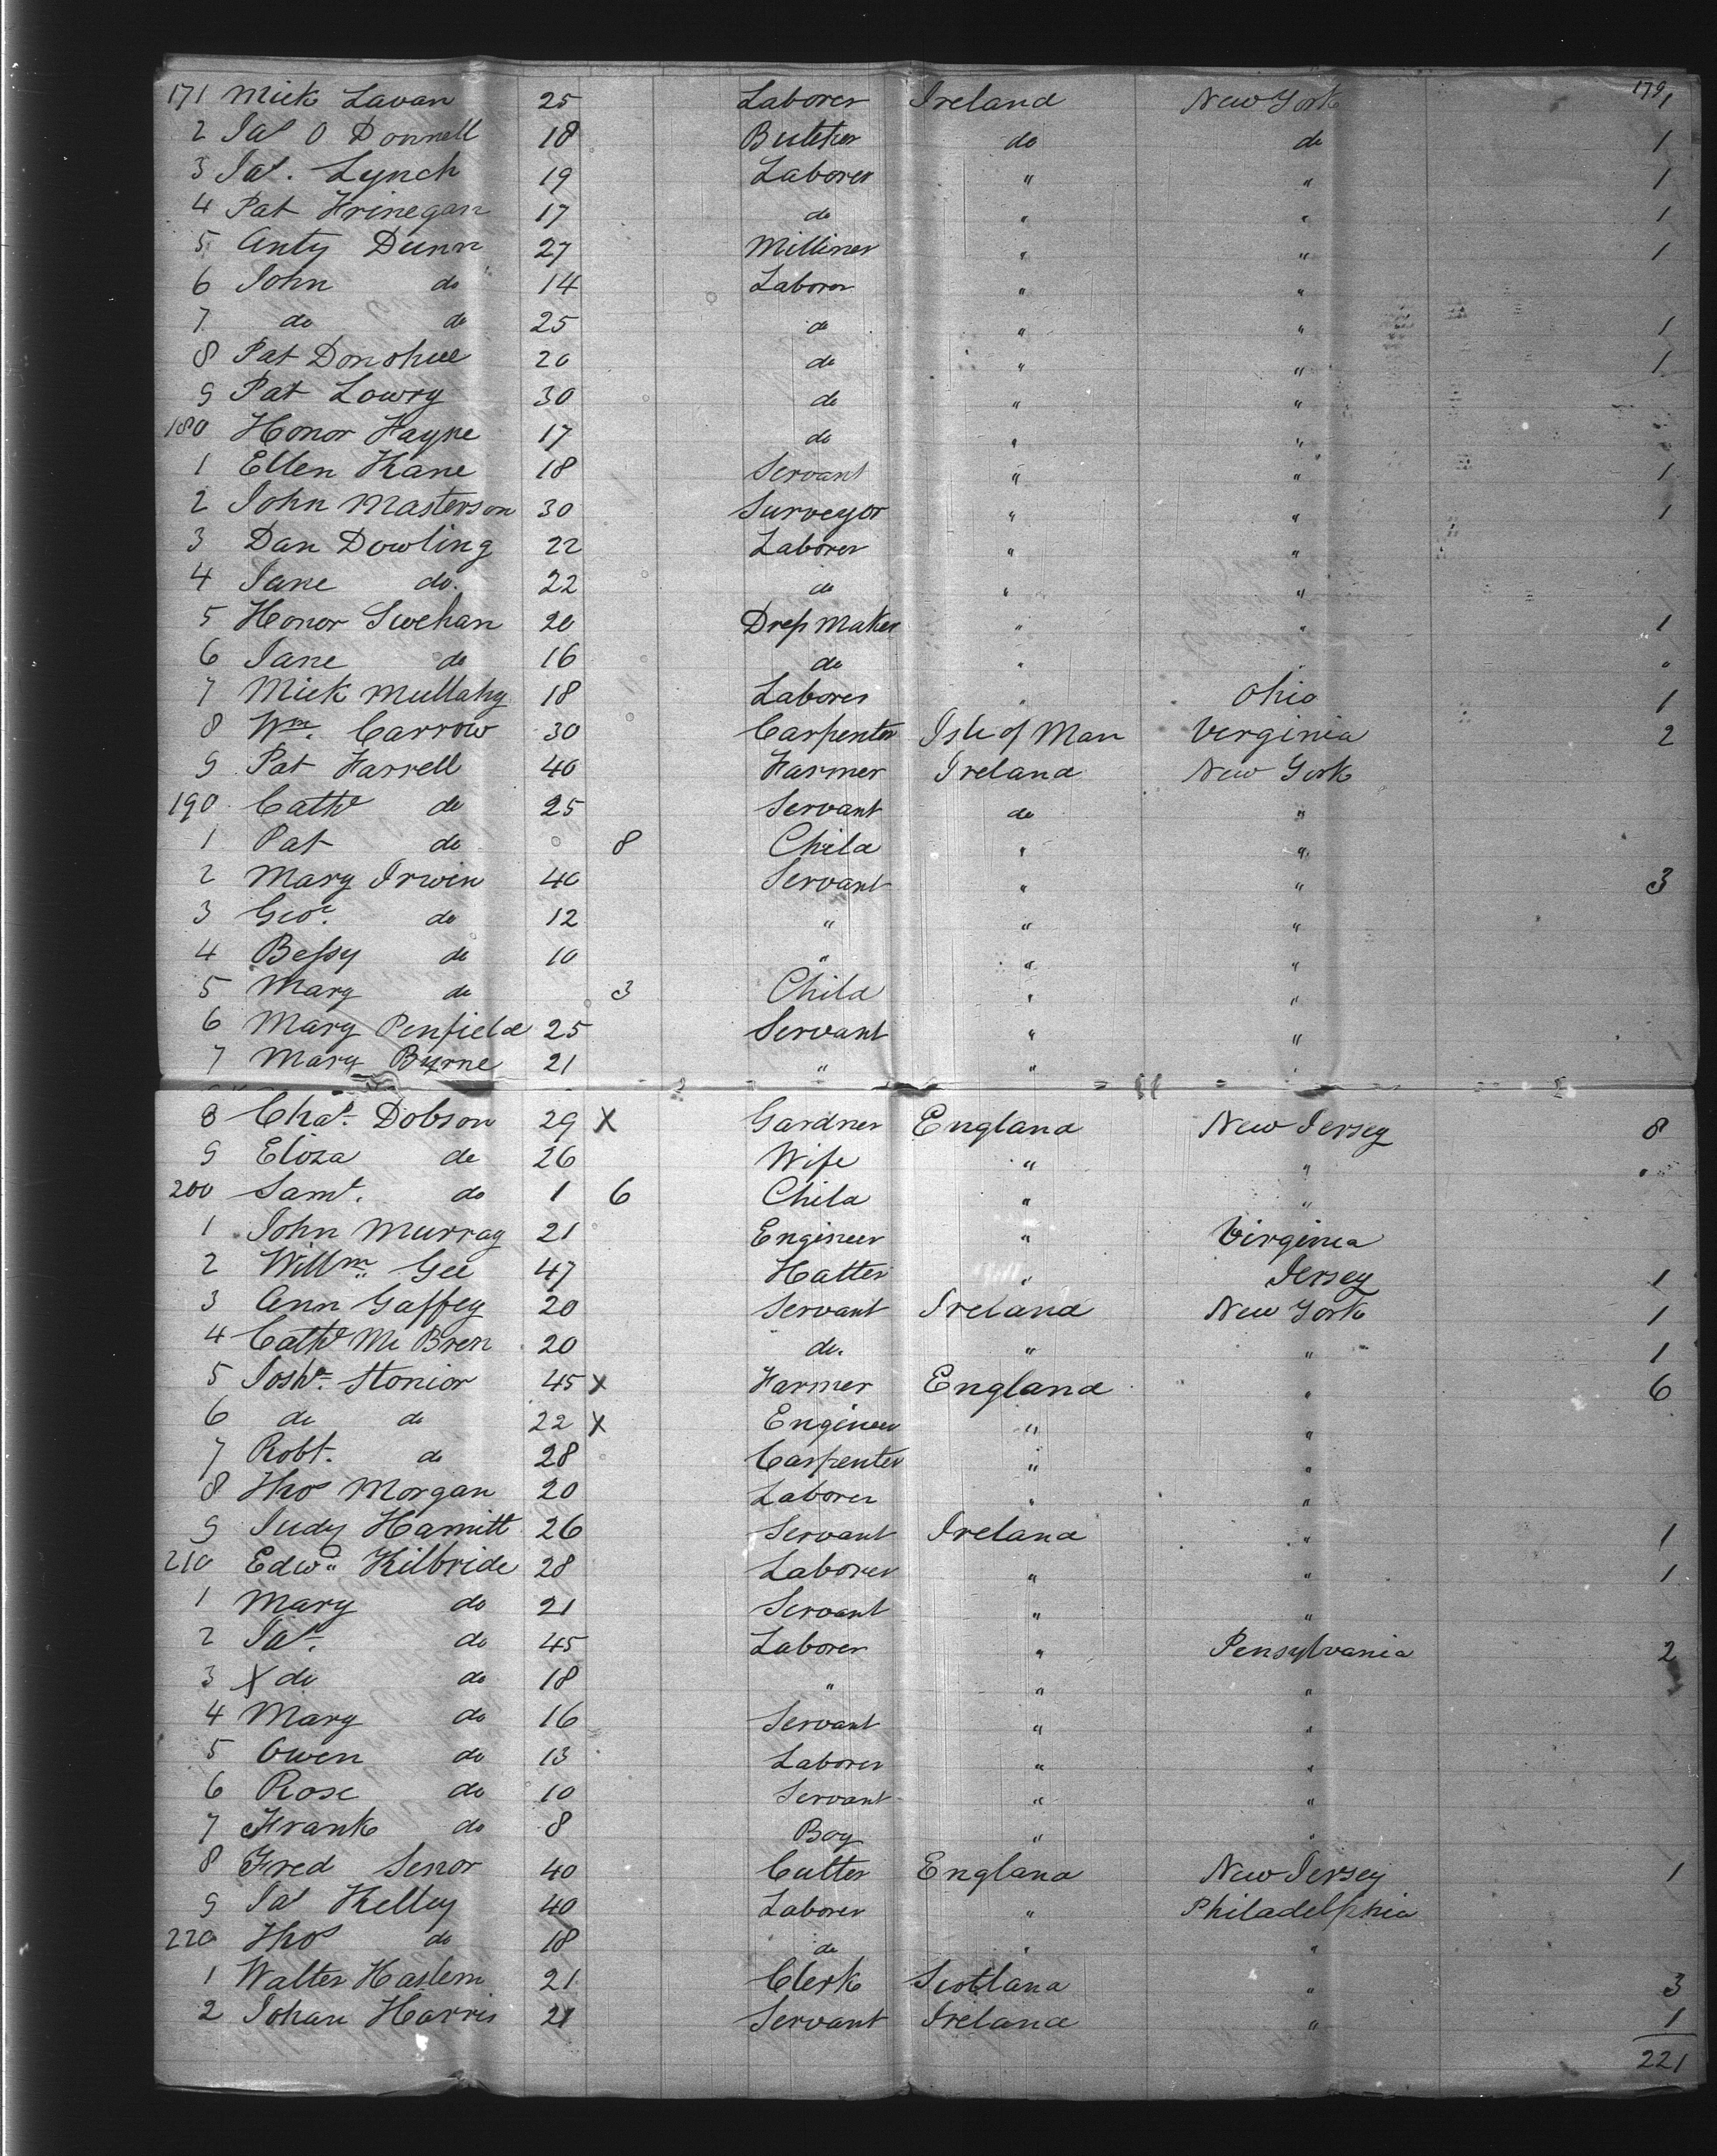 171 Mick Lavan 25 Laborer Ireland New York 179 1
2 Jas O Donnell 18 Butcher do do 1
3 Jas. Lynch 19 Laborer " " 1
4 Pat Finnegan 17 do " " 1
5 Anty Dunn 27 Milliner " " 1
6 John do 14 Laborer " "
7 do do 25 do " " 1
8 Pat Donohue 20 do " " 1
9 Pat Lowry 30 do " "
180 Honor Fayne 17 do " "
1 Ellen Kane 18 Servant " " 1
2 John Masterson 30 Surveyor " " 1
3 Dan Dowling 22 Laborer " "
4 Jane do. 22 do " "
5 Honor 20 Dress Maker " " 1
6 Jane do 16 do " " "
7 Mick Mullahy 18 Laborer " Ohio 1
8 Wm. Carrow 30 Carpenter Isle of Man Verginia 2
9 Pat Farrell 40 Farmer Ireland New York
190 Cathe do 25 Servant do "
1 Pat do 8 Child " "
2 Mary Irwin 40 Servant " " 3
3 Geoe. do 12 " " "
4 Bessy do 10 " " "
5 Mary do 3 Child " "
6 Mary Penfield 25 Servant " "
7 Mary Byrne 21 " " "
8 Chas. Dobson 29 X Gardner England New Jersey 8
9 Eliza do 26 Wife " "
200 Saml. do 1 6 Child " "
1 John Murray 21 Engineer " Virginia
2 Willm Gee 47 Hatter " Jersey 1
3 Ann Gaffey 20 Servant Ireland New York 1
4 Cathe Mc Bren 20 do. " " 1
5 Josha. Stonior 45 X Farmer England " 6
6 do do 22 X Engineer " "
7 Robt. do 28 Carpenter " "
8 Thos Morgan 20 Laborer " "
9 Judy 26 Servant Ireland " 1
210 Edwd Kilbride 28 Laborer " " 1
1 Mary do 21 Servant " "
2 Jas. do 45 Laborer " Pensylvania 2
3 X do do 18 " " "
4 Mary do 16 Servant " "
5 Owen do 13 Laborer " "
6 Rose do 10 Servant " "
7 Frank do 8 Boy " "
8 Fred Senor 40 Cutter England New Jersey 1
9 Jas Kelley 40 Laborer " Philadelphia
220 Thos do 18 do " "
1 Walter Haslem 21 Clerk Scotland " 3
2 Johan Harris 21 Servant Ireland " 1
221